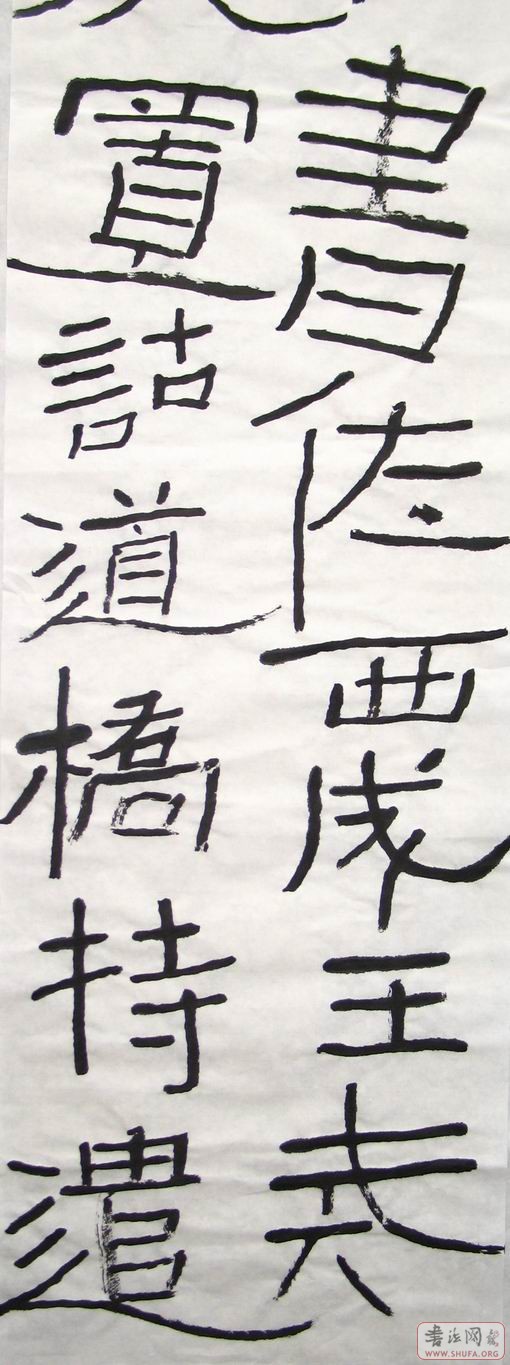 書佐西成王戒
置詁道橋持遣
書法网
WWW.SHUFA.ORG